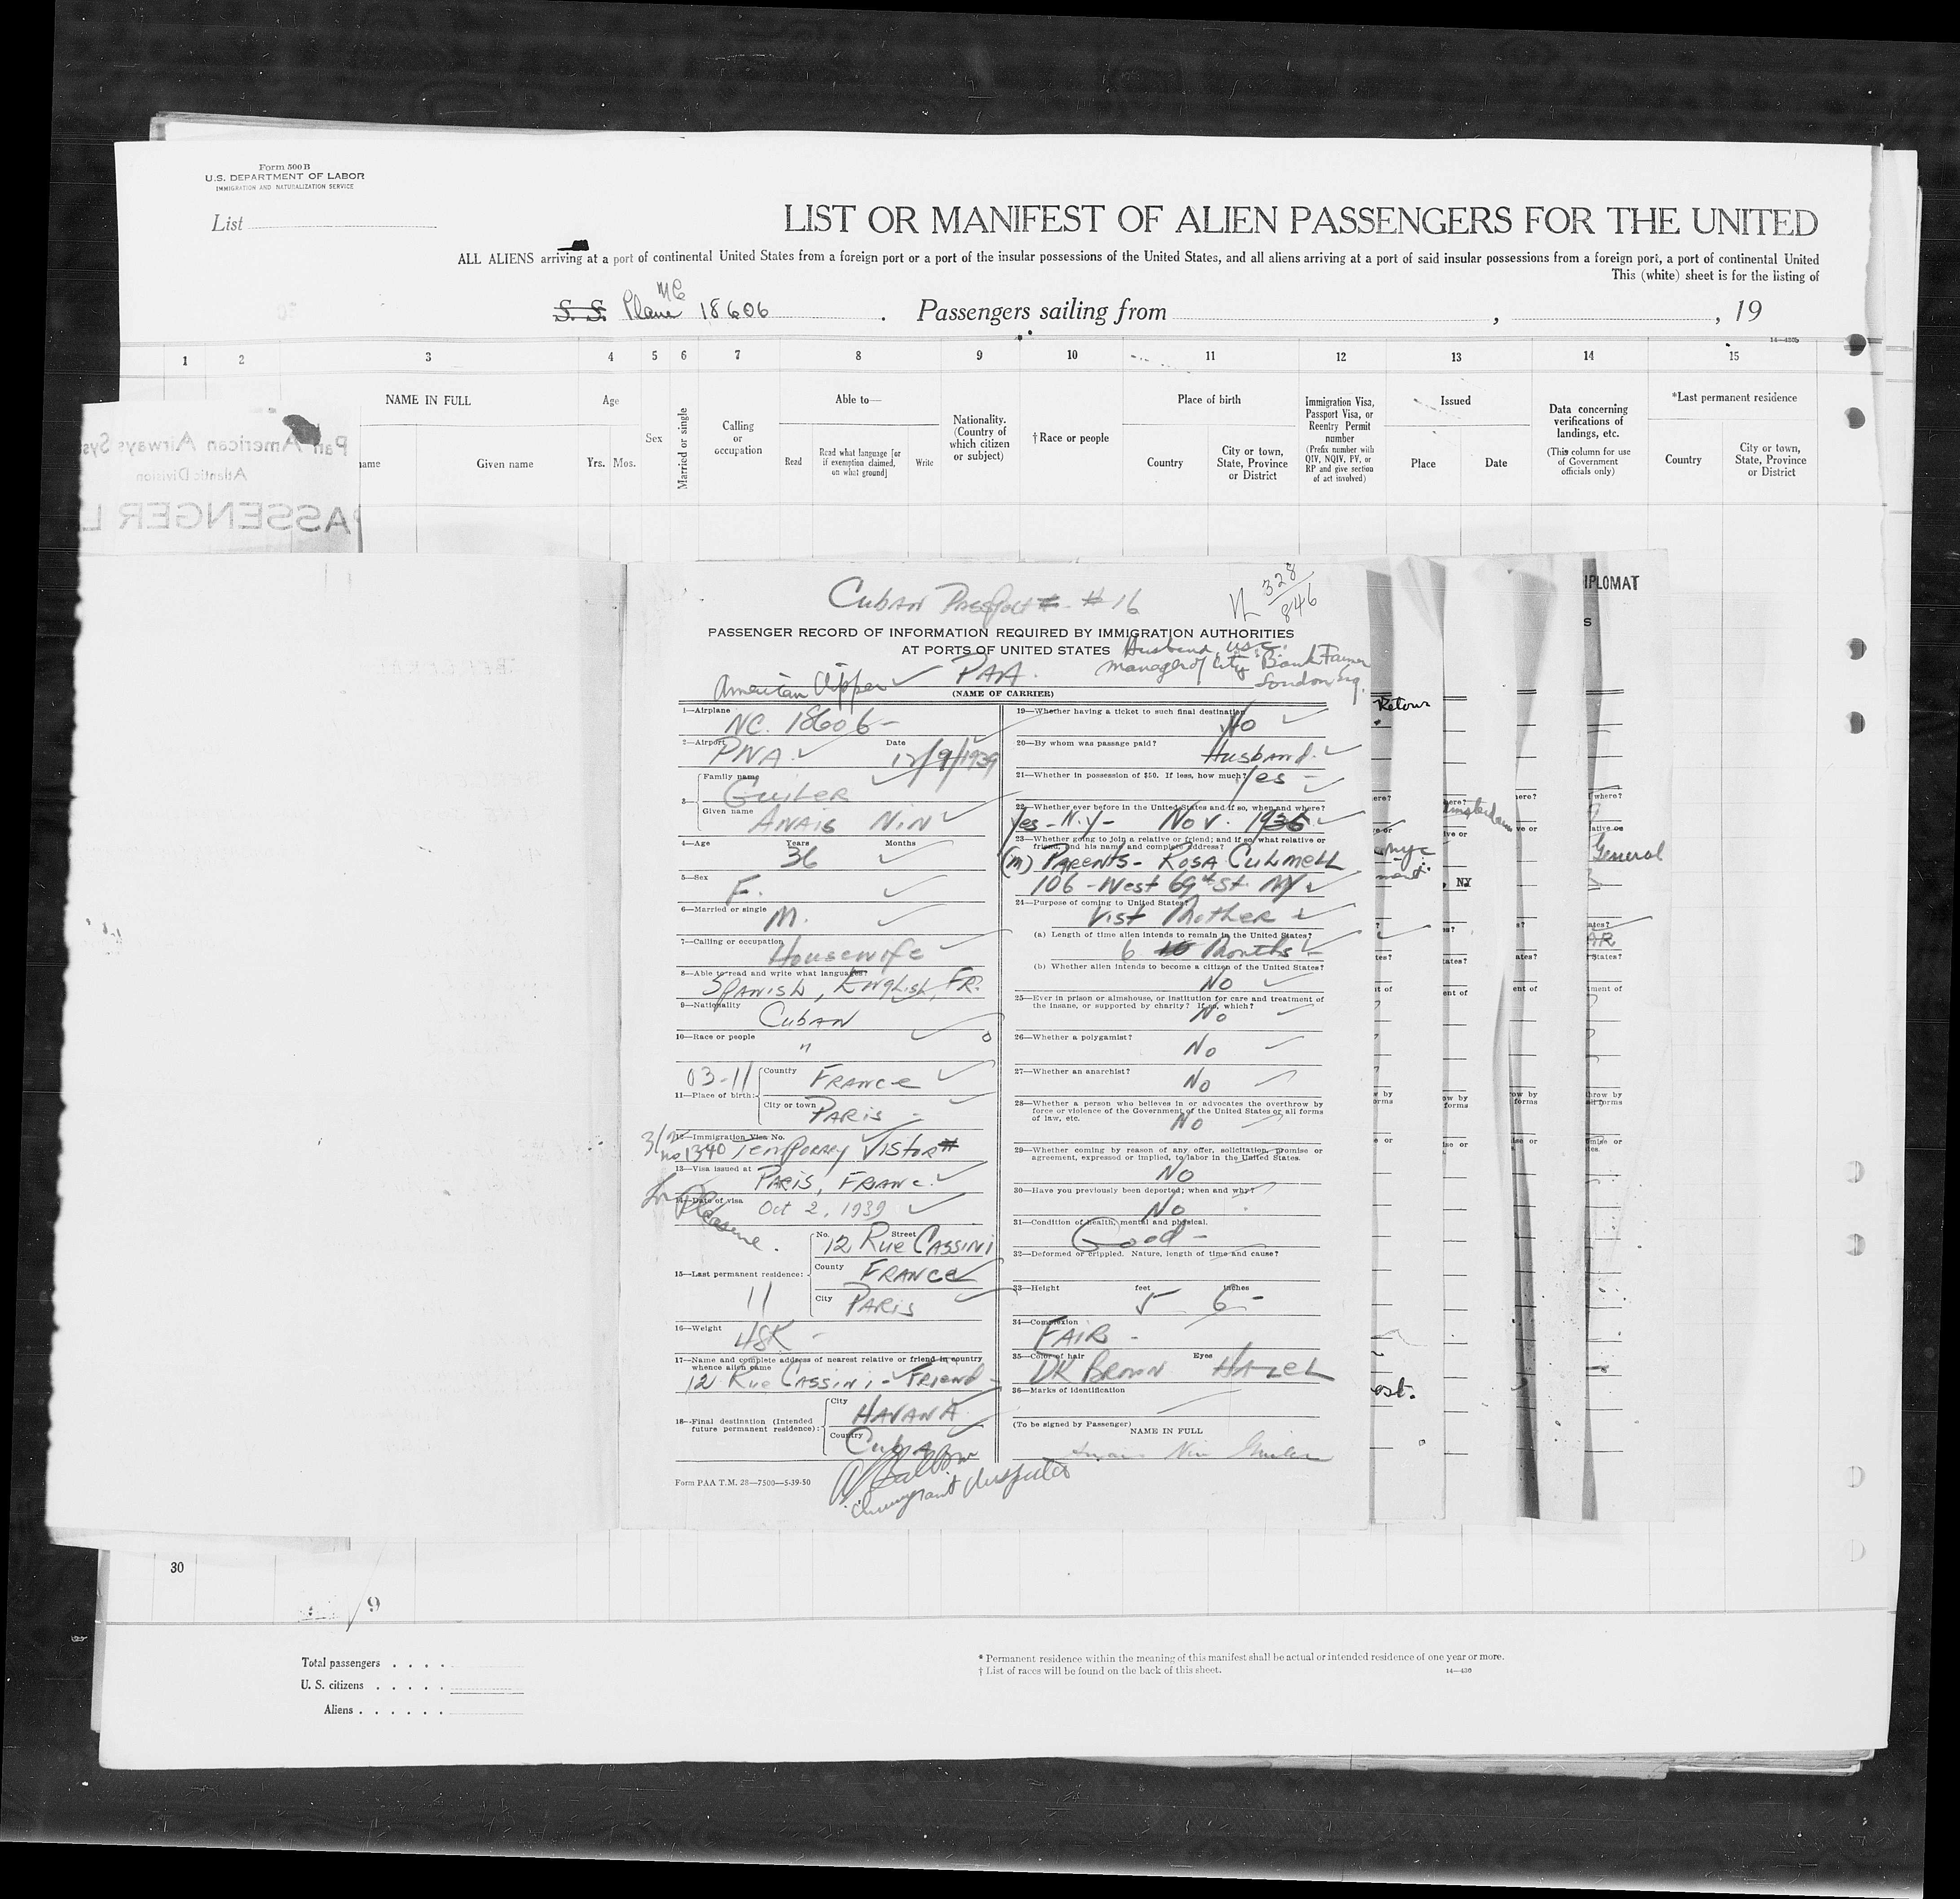 Form 500 B
U.S. DEPARTMENT OF LABOR
IMMIGRATION AND NATURALIZATION SERVICE
List
LIST OR MANIFEST OF ALIEN PASSENGERS FOR THE UNITED
ALL ALIENS arriving at a port of continental United States from a foreign port or a port of the insular possessions of the United States, and all aliens arriving at a port of said insular possessions from a foreign port, a port of continental United
This (white) sheet is for the listing of
S. S. Plane NC 18606 . Passengers sailing from , , 19
14—430b
1 2 3 4 5 6 7 8 9 10 11 12 13 14 15
NAME IN FULL
Given name
Age
Yrs. Mos.
Sex
Married or single
Calling
or
occupation
Able to—
Read
Read what language [or
if exemption claimed,
on what ground]
Write
Nationality.
(Country of
which citizen
or subject)
† Race or people
Place of birth
Country
City or town,
State, Province
or District
Immigration Visa,
Passport Visa, or
Reentry Permit
number
(Prefix number with
QIV, NQIV, PV, or
RP and give section
of act involved)
Issued
Place
Date
Data concerning
verifications of
landings, etc.
(This column for use
of Government
officials only)
*Last permanent residence
Country
City or town,
State, Province
or District
Pan American Airways Sys
Atlantic Division
PASSENGER L
Cuban Passport # - #16
328
846
PASSENGER RECORD OF INFORMATION REQUIRED BY IMMIGRATION AUTHORITIES
AT PORTS OF UNITED STATES
Husband, U.S.C.
manager of City Bank Farmer
London Eng.
American Clipper PAA.
(NAME OF CARRIER)
1—Airplane
NC. 18606 -
2—Airport PNA. Date 12/9/1939
3— Family name
Guiler
Given name
Anais Nin
4—Age Years 36 Months
5—Sex F.
6—Married or single M.
7—Calling or occupation
Housewife
8—Able to read and write what languages
Spanish, English, Fr.
9—Nationality
Cuban
10—Race or people
"
03-11
11—Place of birth: Country France
City or town Paris -
12—Immigration Visa No.
1340 Temporary Vistor #
13—Visa issued at
Paris, France.
14—Date of visa Oct 2, 1939
Pleasure.
15—Last permanent residence: No. Street
12 Rue Cassini
County France
City Paris
11
16—Weight 48K -
17—Name and complete address of nearest relative or friend in country
whence alien came
12 Rue Cassini - Friend -
18—Final destination (Intended
future permanent residence): City Havana
Country Cuba
Form PAA T.M. 28—7500—5-39-50
19—Whether having a ticket to such final destination
No
20—By whom was passage paid?
Husband.
21—Whether in possession of $50. If less, how much? Yes -
22—Whether ever before in the United States and if so, when and where?
Yes - N.Y - Nov. 1935
23—Whether going to join a relative or friend; and if so, what relative or
friend and his name and complete address?
(m) Parents - Rosa Culmell
106 - West 69th St. NY
24—Purpose of coming to United States?
Vist Mother
(a) Length of time alien intends to remain in the United States?
6 Months
(b) Whether alien intends to become a citizen of the United States?
No
25—Ever in prison or almshouse, or institution for care and treatment of
the insane, or supported by charity? If so, which?
No
26—Whether a polygamist?
No
27—Whether an anarchist?
No
28—Whether a person who believes in or advocates the overthrow by
force or violence of the Government of the United States or all forms
of law, etc.
No
29—Whether coming by reason of any offer, solicitation, promise or
agreement, expressed or implied, to labor in the United States.
No
30—Have you previously been deported; when and why?
No
31—Condition of health, mental and physical.
Good -
32—Deformed or crippled. Nature, length of time and cause?
33—Height feet 5 inches 6 -
34—Complexion
Fair -
35—Color of hair Dk Brown Eyes Hazel
36—Marks of identification
(To be signed by Passenger)
NAME IN FULL
Anais Nin Guiler
IPLOMAT
General
, NY
30
9
Total passengers . . . .
U. S. citizens . . . . .
Aliens . . . . . .
* Permanent residence within the meaning of this manifest shall be actual or intended residence of one year or more.
† List of races will be found on the back of this sheet.
14—430